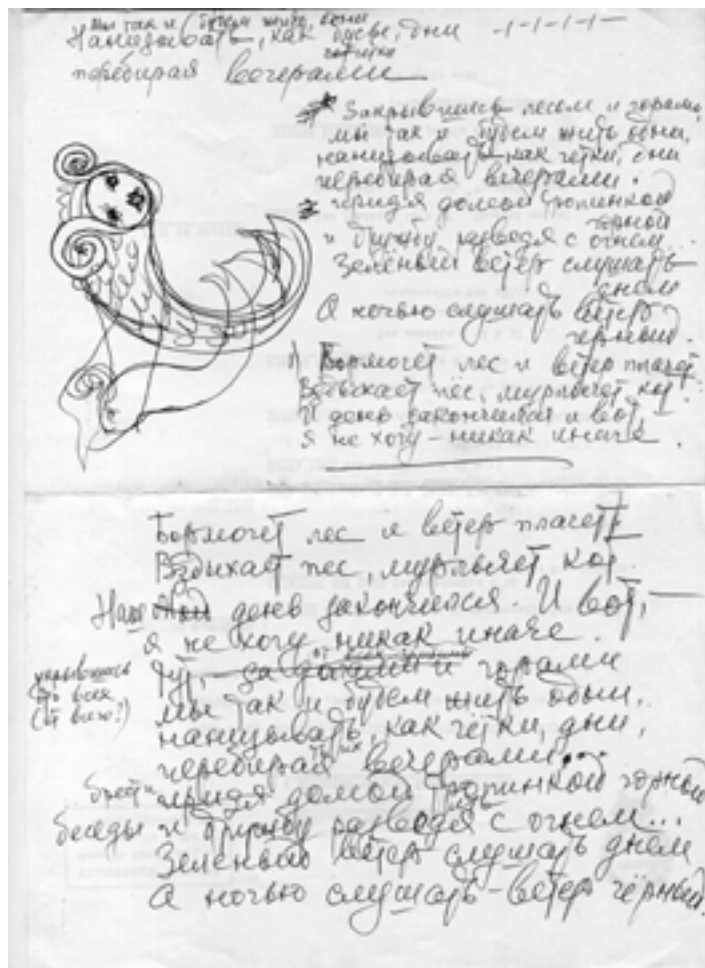 Мы так и будем жить одни
Нанизывать, как бусы, дни -/-/-/-/-
чётки
перебирая вечерами
Закрывшись лесом и горами,
мы так и будем жить одни,
нанизывать как чётки, дни
перебирая вечерами.
придя домой тропинкой
горной
и дружбу разведя с огнем...
Зеленый ветер слушать
днем
А ночью слушать ветер
черный.
Бормочет лес и ветер плачет
Вздыхает пес, мурлычет кот.
И день закончился и вот,
я не хочу - никак иначе.
Бормочет лес и ветер плачет
Вздыхает пес, мурлычет кот.
Наш день закончился. И вот, —
я не хочу никак иначе.
укрывшись
от всех
(от всего?)
Тут, - за дымами и горами
мы так и будем жить одни,
нанизывать, как чётки, дни,
перебирая вечерами...
придя домой тропинкой горной
беседы и дружбу разведя с огнем...
Зеленый ветер слушать днем
А ночью слушать - ветер чёрный.